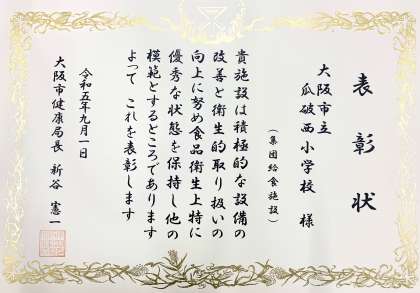 表彰状
大阪市立
瓜破西小学校 様
(集団給食施設)
貴施設は積極的な設備の
改善と衛生的取り扱いの
向上に努め食品衛生上特に
優秀な状態を保持し他の
模範とするところであります
よって これを表彰します
令和五年九月一日
大阪市健康局長 新谷 憲一